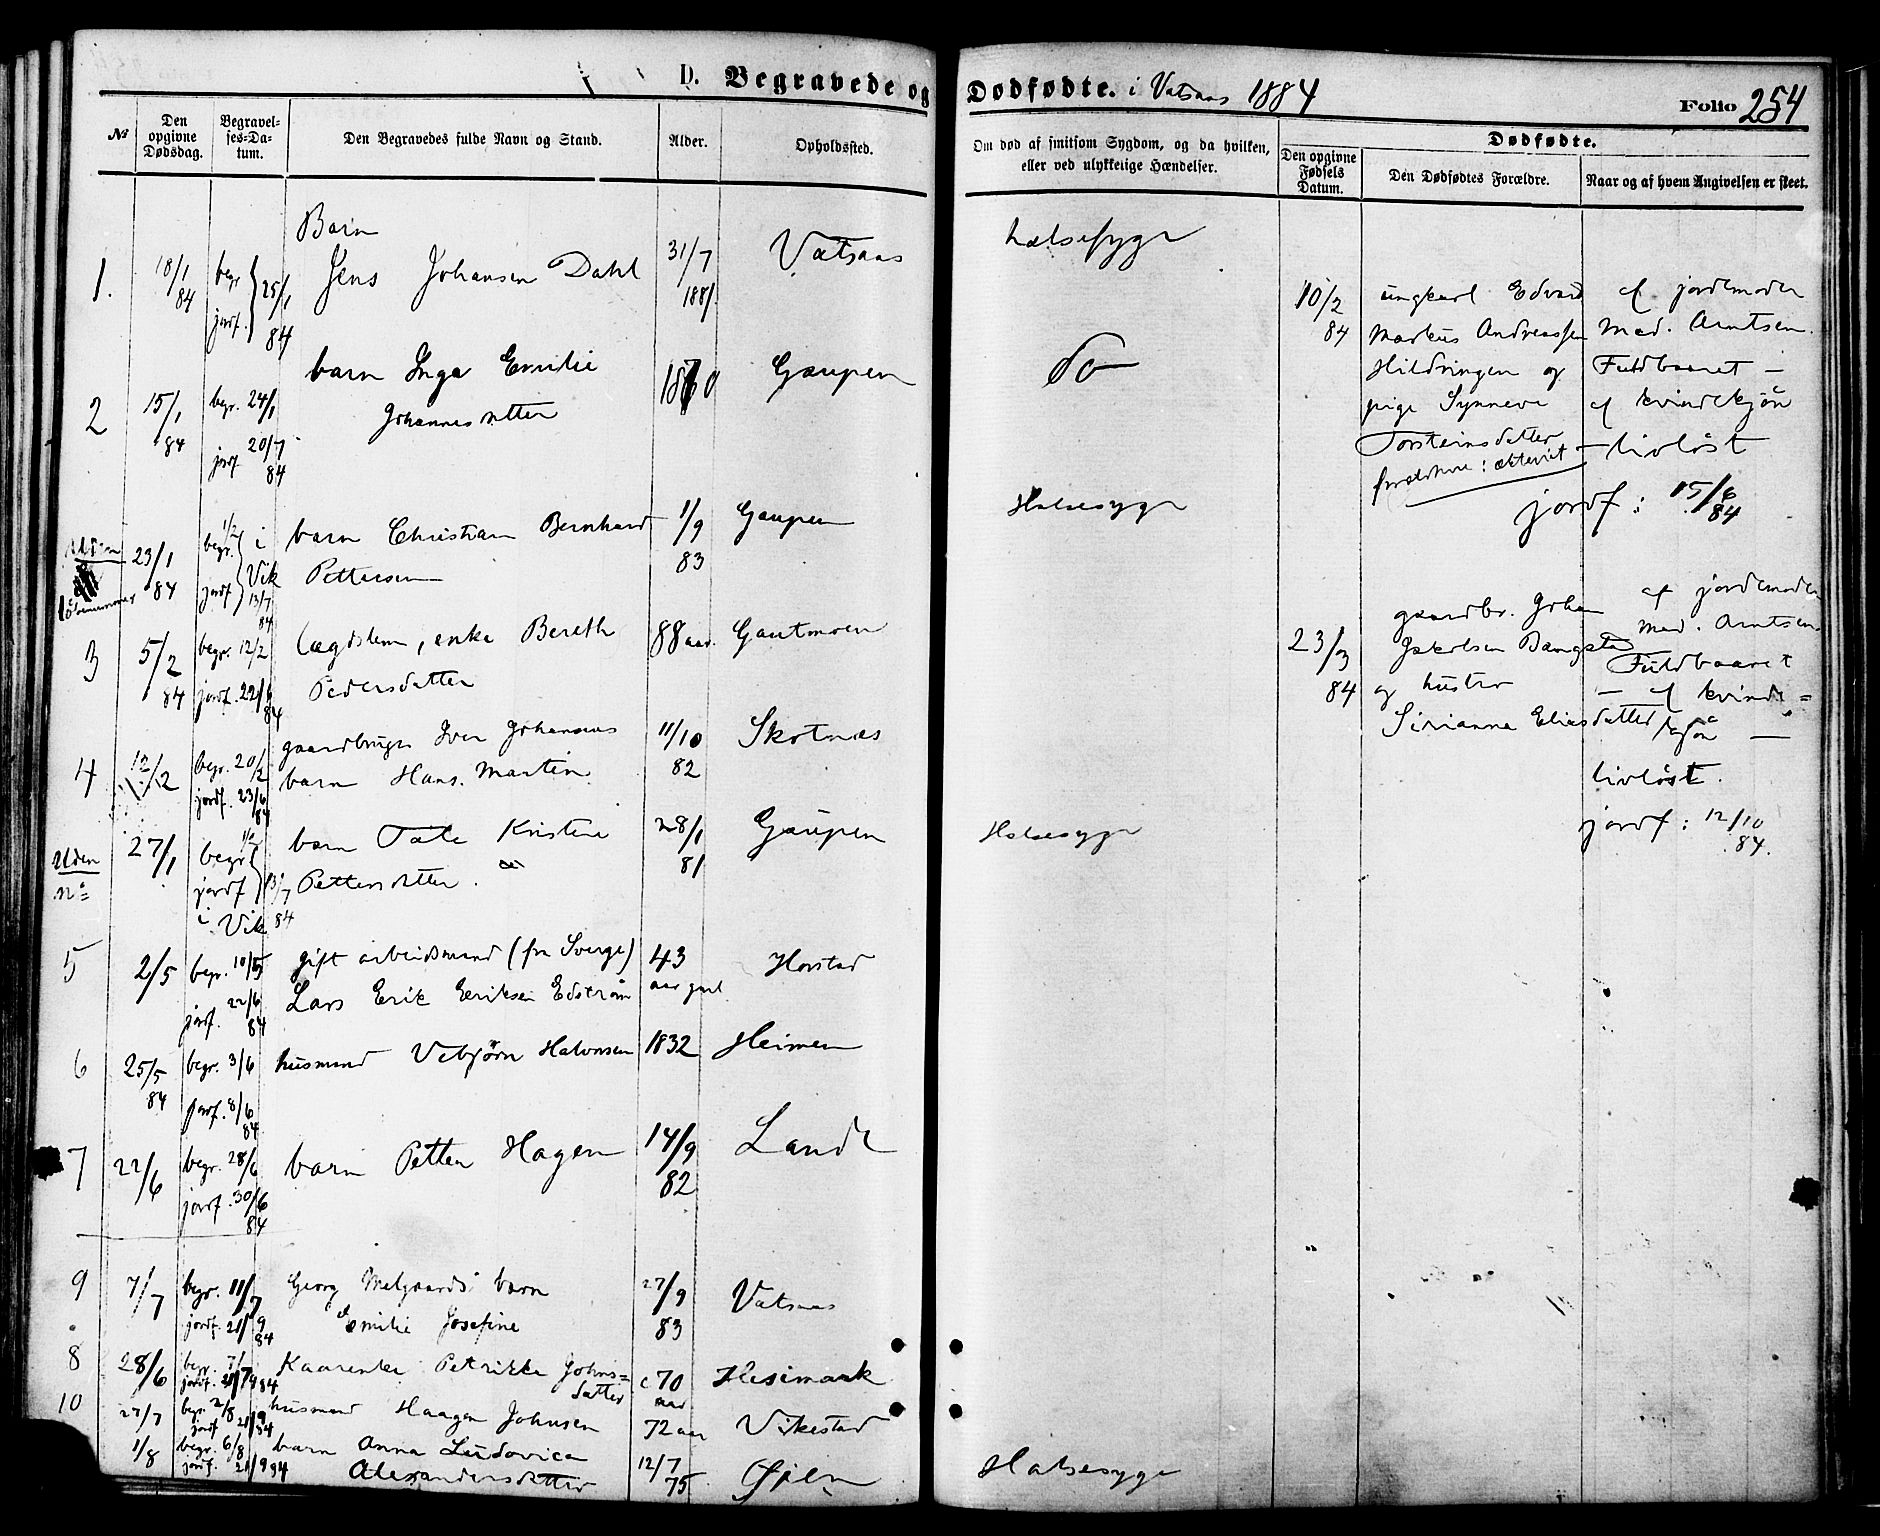 D. Begravede og Dødfødte. i Vatsaas 1884
Folio 254
№
Den opgivne Dødsdag.
Begravelses-Datum.
Den Begravedes fulde Navn og Stand.
Alder.
Opholdssted.
Om død af smitsom Sygdom, og da hvilken, eller ved ulykkelige Hændelser.
Dødfødte.
Den opgivne Fødsels Datum.
Den Dødfødtes Forældre.
Naar og af hvem Angivelsen er skeet.
1. 18/1 84 begr jordf. } 25/1 84 Barn
Jens Johansen Dahl 31/7 1881. Vatsaas halsesyge
2 15/1 84 begr. 24/1 jordf 20/7 84 barn Inga Emilie
Johannesdtter Gaupen Do
Uden
23/1 84 begr. 1/2 jordf } i Vik 13/7 84 barn Christian Bernhard
Pettersen 1/9 83 Gaupen Halsesyge
3 5/2 84 begr. 12/2 jordf. 22/6 84 lægdslem, enke Bereth
Pedersdatter 88 aar. Gautmoen
4 12/2 begr. 20/2 jordf. 23/6 84 gaardbruger Iver Johansens
barn Hans Martin 11/10 82 Skotnes
Uden
No
27/1 begr 1/2 jordf } 13/7 84 i Vik barn Kristine
Pettersdtter. 28/1 81 Gaupen Halsesyge
5 2/5 begr. 10/5 jordf. 22/6 84 gift arbeidsmand (fra Sverge)
Lars Erik Eeriksen Edstrøm 43 aar gml Horstad
6 25/5 84 begr. 3/6 jordf. 8/6 84 husmand Vebjørn Halvorsen 1832 Heimen
7 22/6 begr. 28/6 jordf. 30/6 84 barn Petter Hagen 14/9 82 Lande
9 7/7 begr. 11/7 jordf. 21/9 84 Georg Melgaards barn
Emilie Josefine 27/9 83 Vatsaas
8 28/6 begr. 7/7 jordf. 21/9 84 Kaarenke Petrikke Johns=
datter c 70 aar Hesimark
10 27/7 begr 2/8 jordf 21/9 84 husmand Haagen Johnsen 72 aar Vikestad
1/8 begr. 6/8 jordf. 21/9 94 barn Anna Ludovica
Alexandersdatter 12/7 75 Øjen Halsesyge
10/2 84
ungkarl Edvard
Markus Andreassen
Hildringen og
pige Synneve
Torsteinsdatter
af jordemoder
Mad. Arntsen.
Fuldbaaret –
af kvindekjøn
– livløst
jordf: 15/6 84
23/3 84
gaardbr. Johan
Jakobsen Bangstad
og hustru
Sirianna Eliasdatter
af jordemoder
Mad. Arntsen.
Fuldbaaret
– af kvinde=
kjøn –
livløst.
jordf: 12/10 84.